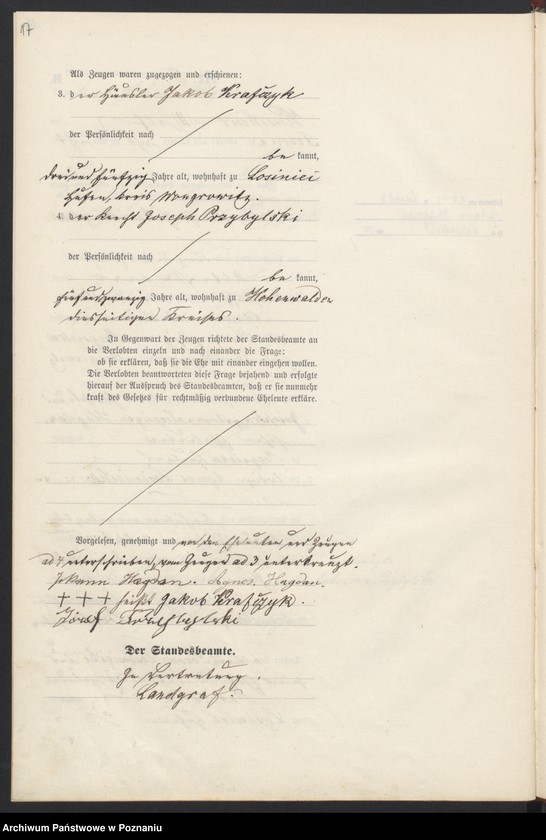 17
Als Zeugen waren zugezogen und erschienen:
3. der Häusler Jakob Krafczyk
der Persönlichkeit nach
be kannt,
drei und fünfzig Jahre alt, wohnhaft zu Losiniec
Hufen, Kreis Wongrowitz.
4. der Knecht Joseph Przybylski
der Persönlichkeit nach
be kannt,
fünfundzwanzig Jahre alt, wohnhaft zu Hohenwalden
diesseitigen Kreises.
In Gegenwart der Zeugen richtete der Standesbeamte an
die Verlobten einzeln und nach einander die Frage:
ob sie erklären, daß sie die Ehe mit einander eingehen wollen.
Die Verlobten beantworteten diese Frage bejahend und erfolgte
hierauf der Ausspruch des Standesbeamten, daß er sie nunmehr
kraft des Gesetzes für rechtmäßig verbundene Eheleute erkläre.
Vorgelesen, genehmigt und von den Eheleuten und Zeugen
ad 4 unterschrieben, vom Zeugen ad 3 unterkreuzt.
Johann Hagdan. Agnes Hagdan.
+ + + heißt Jakob Krafczyk.
Józef
Der Standesbeamte.
In Vertretung.
Landgraf.
Archiwum Państwowe w Poznaniu